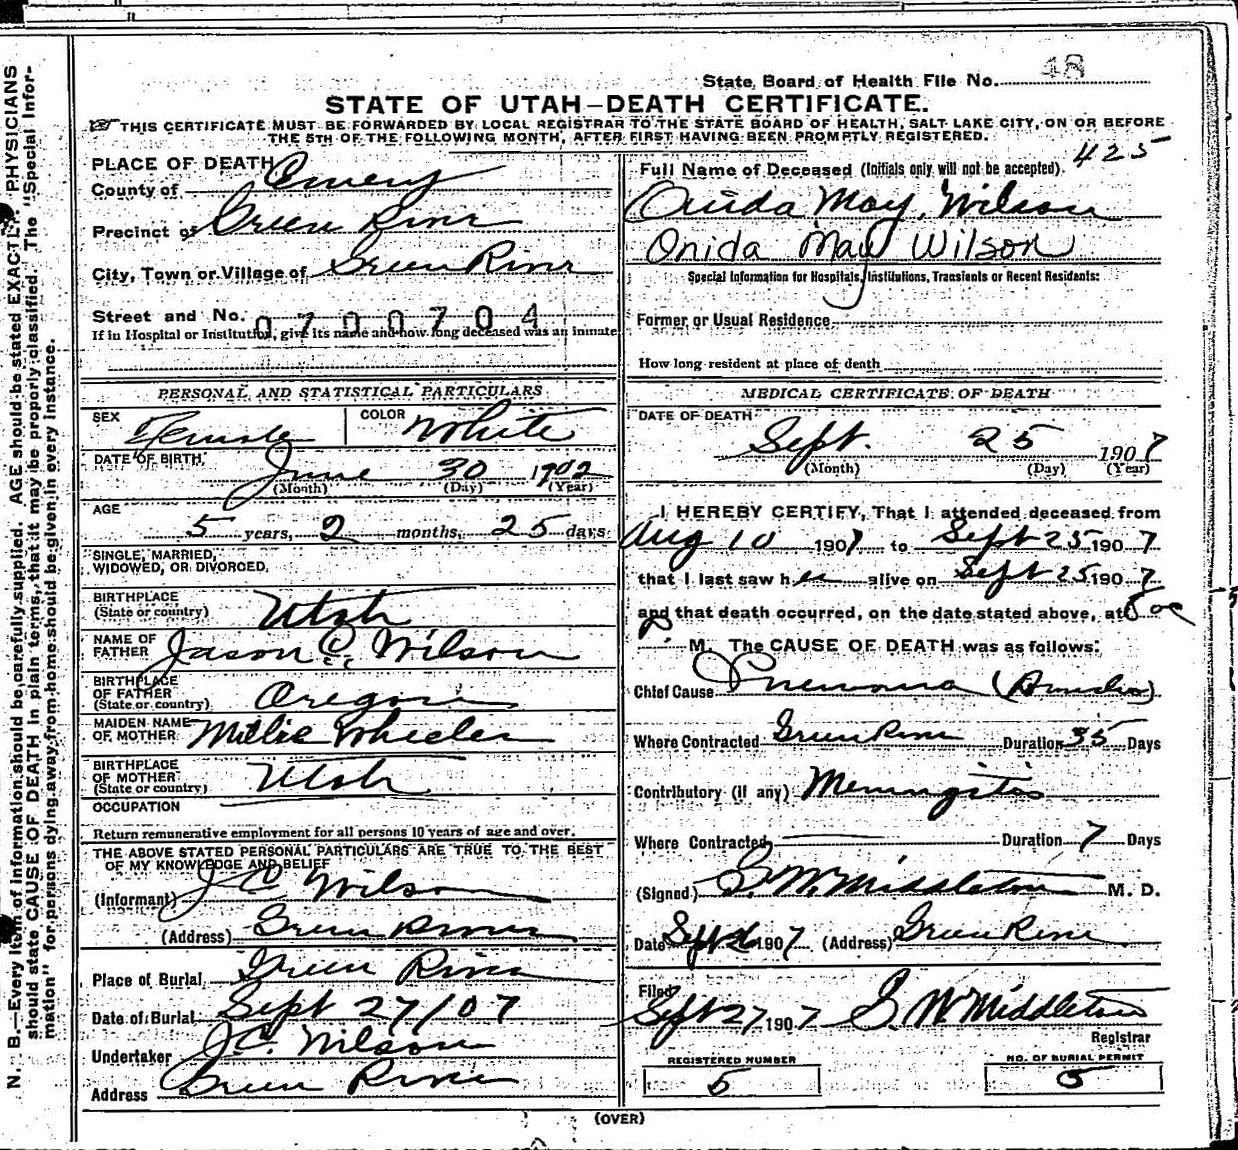 State Board of Health File No. 48
STATE OF UTAH—DEATH CERTIFICATE.
THIS CERTIFICATE MUST BE FORWARDED BY LOCAL REGISTRAR TO THE STATE BOARD OF HEALTH, SALT LAKE CITY, ON OR BEFORE
THE 5TH OF THE FOLLOWING MONTH, AFTER FIRST HAVING BEEN PROMPTLY REGISTERED.
PLACE OF DEATH
County of Emery
Precinct of Green River
City, Town or Village of Green River
Street and No. 0700704
If in Hospital or Institution, give its name and how long deceased was an inmate
PERSONAL AND STATISTICAL PARTICULARS
SEX Female COLOR White
DATE OF BIRTH June 30 1902
(Month) (Day) (Year)
AGE
5 years, 2 months, 25 days
SINGLE, MARRIED,
WIDOWED, OR DIVORCED.
BIRTHPLACE
(State or country) Utah
NAME OF
FATHER Jason C. Wilson
BIRTHPLACE
OF FATHER
(State or country) Oregon
MAIDEN NAME
OF MOTHER Millie Wheeler
BIRTHPLACE
OF MOTHER
(State or country) Utah
OCCUPATION
Return remunerative employment for all persons 10 years of age and over.
THE ABOVE STATED PERSONAL PARTICULARS ARE TRUE TO THE BEST
OF MY KNOWLEDGE AND BELIEF
(Informant) J C Wilson
(Address) Green River
Place of Burial Green River
Date of Burial Sept 27/07
Undertaker J. C. Wilson
Address Green River
425
Full Name of Deceased (Initials only will not be accepted).
Onida May Wilson
Onida May Wilson
Special Information for Hospitals, Institutions, Transients or Recent Residents:
Former or Usual Residence
How long resident at place of death
MEDICAL CERTIFICATE OF DEATH
DATE OF DEATH
Sept. 25 1907
(Month) (Day) (Year)
I HEREBY CERTIFY, That I attended deceased from
Aug 10 1907 to Sept 25 1907
that I last saw her alive on Sept 25 1907
and that death occurred, on the date stated above, at
M. The CAUSE OF DEATH was as follows:
Chief Cause
Where Contracted Green River Duration 35 Days
Contributory (if any) Meningitis
Where Contracted Duration 7 Days
(Signed) G. W. Middleton M. D.
Date Sept 26 1907 (Address) Green River
Filed
Sept 27 1907 G. W. Middleton
Registrar
REGISTERED NUMBER
5
NO. OF BURIAL PERMIT
5
(OVER)
N. B.—Every item of information should be carefully supplied. AGE should be stated EXACTLY. PHYSICIANS
should state CAUSE OF DEATH in plain terms, that it may be properly classified. The "Special Infor-
mation" for persons dying away from home should be given in every instance.